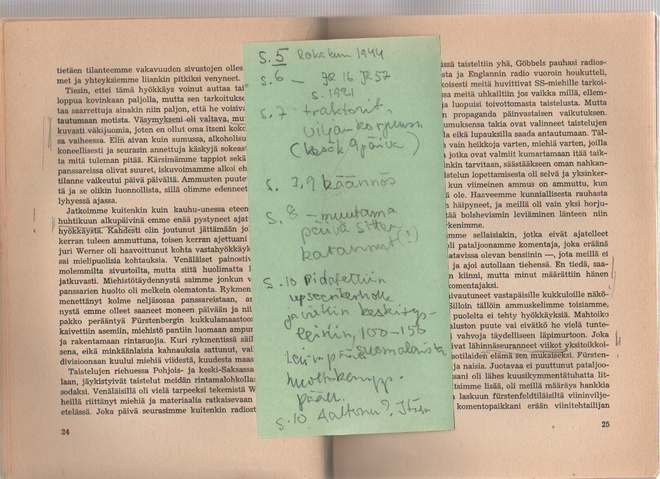 tietäen tilanteemme vakavuuden sivustojen olles
met ja yhteyksiemme liiankin pitkiksi venyneet.
Tiesin, ettei tämä hyökkäys voinut auttaa
loppua kovinkaan paljolla, mutta sen tarkoituks
taa saarrettuja ainakin niin paljon, että he voisiv
tautumaan motista. Väsymykseni oli valtava, mu
kuvasti väkijuomia, joten en ollut oma itseni koko
sa vaiheessa. Elin aivan kuin sumussa, alkoholisu
koneellisesti ja seurasin annettuja käskyjä sokeast
ta mitä tuleman pitää. Kärsimämme tappiot sekä
panssareissa olivat suuret, iskuvoimamme alkoi eh
tilanne vaikeutui päivä päivältä. Ammusten puute
tä ja se olikin luonnollista, sillä olimme edenneet
lyhyessä ajassa.
Jatkoimme kuitenkin kuin kauhu-unessa eteen
huhtikuun alkupäivinä emme enää pystyneet ajat
hyökkäystä. Kahdesti olin joutunut jättämään jo
kerran tuleen ammuttuna, toisen kerran ajettuani
juri Werner oli haavoittunut kohta vastahyökkäy
sai mielipuolisia kohtauksia. Venäläiset painostiv
molemmilta sivustoilta, mutta siitä huolimatta l
jatkuvasti. Miehistötäydennystä saimme jonkun v
panssarien huolto oli melkein olematonta. Rykmen
menettänyt kolme neljäsosaa panssareistaan,
nystä emme olleet saaneet moneen päivään ja nii
pakko perääntyä Fürstenbergin kukkulamaastoo
kaivettiin asemiin, miehistö pantiin luomaan ampu
ja rakentamaan rintasuojia. Kuri rykmentissä säil
sena, eikä minkäänlaista kahnauksia sattunut, vai
divisioonaan kuului miehiä viidestä, kuudesta maas
Taistelujen riehuessa Pohjois- ja keski-Saksassa
laan, jäykistyivät taistelut meidän rintamalohkolla
sodaksi. Venäläisillä oli vielä tarpeeksi tekemistä W
heillä riittänyt miehiä ja materiaalia ratkaisevaan
etelässä. Joka päivä seurasimme kuitenkin radiost
24
S. 5 Lokakuu 1944
s. 6 – JR 16 JR 57
s. 1921
s. 7 traktorit,
viljankorjuussa
(kesäk 9 päivä)
s. 7,9 käännös
s. 8 – muutama
päivä sitten
karannut (!)
s. 10 Pidätettiin
upseerikerholla
ja vietiin keskitys-
leiriin, 100–150
km päässä suomalaista
s. 10 Aaltonen?
ssä taisteltiin yhä, Göbbels pauhasi radios-
sta ja Englannin radio vuoroin houkutteli,
oisesti meitä huvittivat SS-miehille tarkoi-
sa meitä uhkailtiin jos vaikka millä, ellem-
a luopuisi toivottomasta taistelusta. Mutta
n propaganda päinvastaisen vaikutuksen.
umuksensa takia ovat valinneet taistelujen
eikä lupauksilla saada antautumaan. Täl-
vain heikkoja varten, miehiä varten, joilla
jotka ovat valmiit kumartamaan itää taik-
inkin tarvitaan, säästääkseen oman nahkan-
stelun lopettamisesta oli selvä ja yksinker-
kun viimeinen ammus on ammuttu, kun
ole. Haaveemme kunniallisesta rauhasta
häipyneet, ja meillä oli vain yksi horju-
bolshevismin leviäminen länteen niin
kenimme.
me sellaisiakin, jotka eivät ajatelleet
oli pataljoonamme komentaja, joka eräänä
tavissa olevan bensiinin —, jota meillä ei
ja ajoi autollaan tiehensä. En tiedä, saa-
kiinni, mutta minut määrättiin hänen
vautuneet vastapäisille kukkuloille näkö-
Silloin tällöin ammuskelimme toisiamme,
puolelta ei tehty hyökkäyksiä. Mahtoiko
aluston puute vai eivätkö he vielä tunte-
vahvoja täydelliseen läpimurtoon. Joka
vat lähinnäseuranneet viikot yksitoikkoi-
sotilaiden elämä sen mukaiseksi. Fürsten-
ja naisia. Juotavaa ei puuttunut pataljoo-
ani oli lähes kuusikymmentätuhatta lit-
timme lisää, oli meillä määräys hankkia
laskuun fürstenfeldtiläisiltä viininvilje-
komentopaikkani erään viinitehtailijan
25